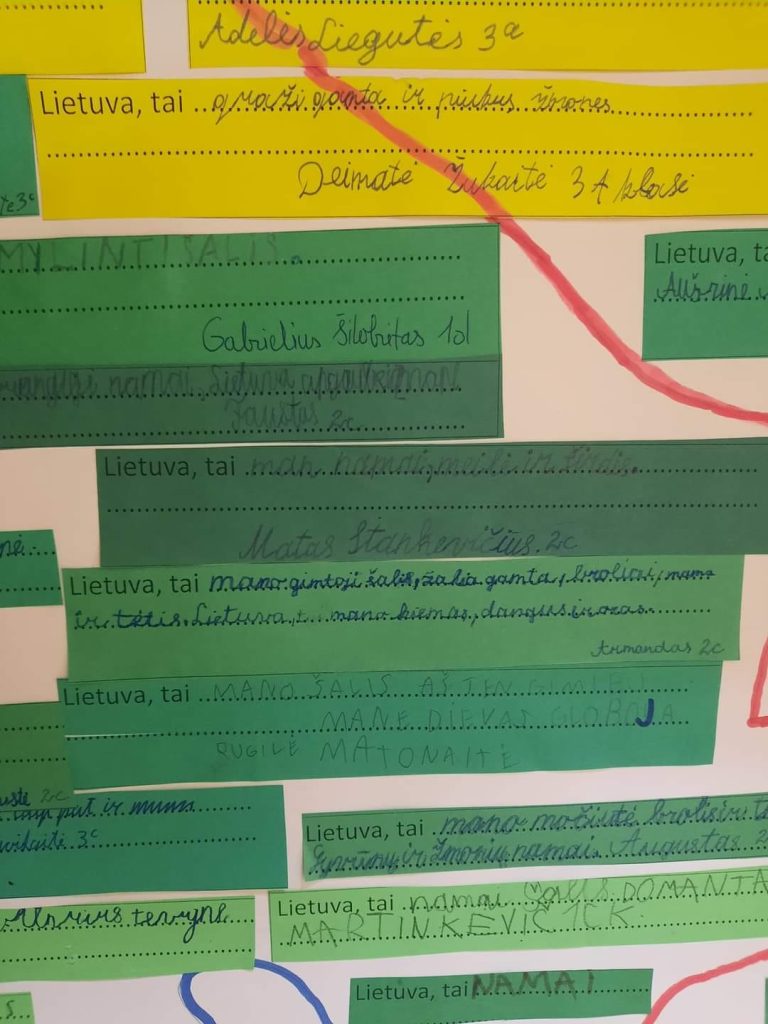 Adelės Liegutės 3a
Lietuva, tai graži gamta ir puikus žmonės
Deimatė Žukaitė 3A klasė
te 3c
MYLINTI ŠALIS.
Lietuva, ta
Aušrinė
Gabrielius Šilobritas 1d
namai, Lietuva
Faustas 2c
Lietuva, tai man namai, meilė ir širdis.
Matas Stankevičius. 2c
nė.
Lietuva, tai mano gimtoji šalis, žalia gamta, broliai, mama
ir tėtis. Lietuva, t mano kiemas, dangus ir oras.
Armandas 2c
Lietuva, tai MANO ŠALIS AŠ TEN GIMIAU
MANE DIEVAS GLOBOJA
RUGILĖ MATONAITĖ
ustė 2c
taip pat ir mums
vilaitė 3c
Lietuva, tai mano močiutė brolis ir t
ir žmonių namai. Augustas 2
Lietuva, tai namai ŠALIS DOMANTA
MARTINKEVIČ 1CK
tėvynė.
Lietuva, tai NAMAI
s.